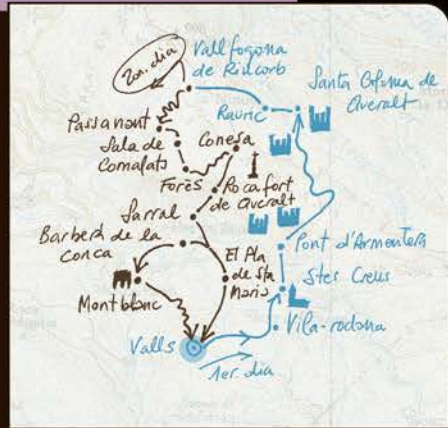 2on. dia
Vallfogona
de Riucorb
Santa Coloma de
Queralt
Rauric
Passanant
Sala de
Comalats
Conesa
Forès
Rocafort
de Queralt
Sarral
Barberà de la
Conca
El Pla
de Sta
Maria
Pont d'Armentera
Stes Creus
Montblanc
Vila-rodona
Valls
1er. dia